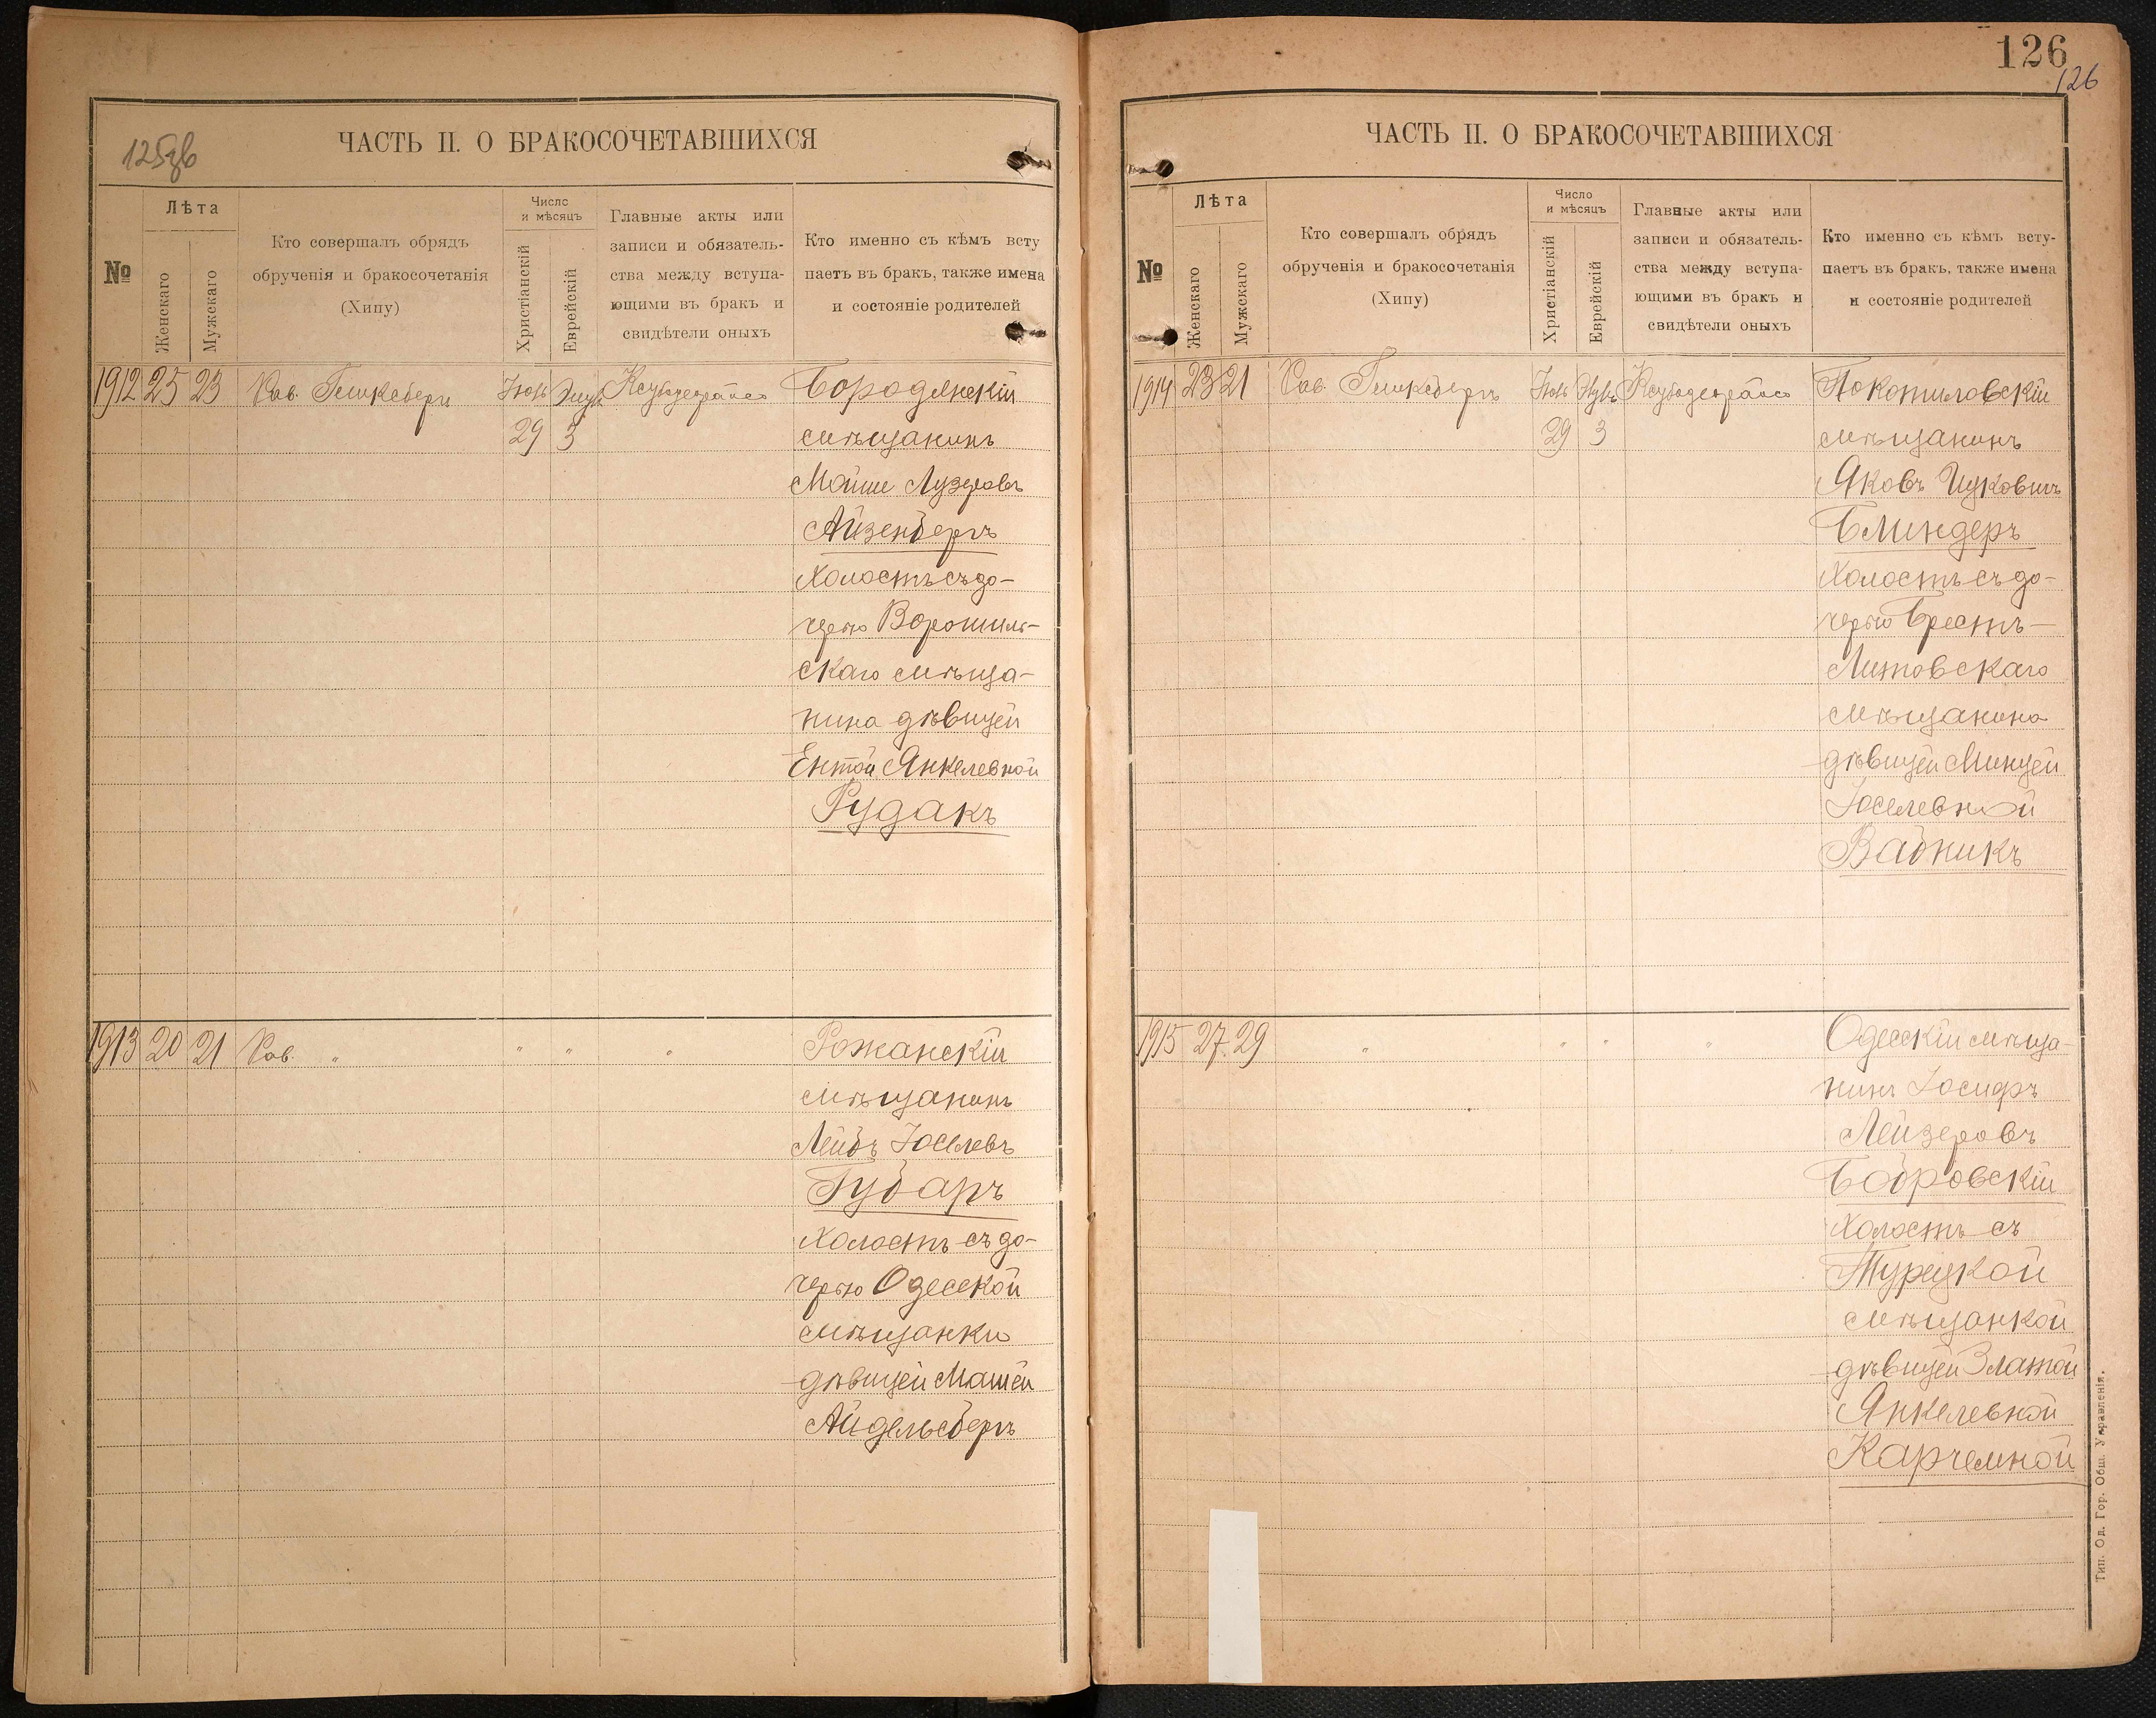 125зв
ЧАСТЬ II. О БРАКОСОЧЕТАВШИХСЯ
№
Лѣта
Женскаго
Мужскаго
Кто совершалъ обрядъ
обрученія и бракосочетанія
(Хипу)
Число
и мѣсяцъ
Христіанскій
Еврейскій
Главные акты или
записи и обязатель-
ства между вступа-
ющими въ бракъ и
свидѣтели оныхъ
Кто именно съ кѣмъ всту
паетъ въ бракъ, также имена
и состояніе родителей
1912 25 23 Рав. Іюль
29 3
Бородянскій
мѣщанинъ
Мойше Лузеровъ
Айзенбергъ
Холостъ съ до-
черью Ворошиль-
скаго мѣща-
нина дѣвицей
Ентой Янкелевной
Рудакъ
1913 20 21 Рав. " " " "
Рожанскій
мѣщанинъ
Лейбъ Іоселевъ
Губаръ
Холостъ съ до-
черью Одесской
мѣщанки
дѣвицей Машей
Айдельсбергъ
126
126
ЧАСТЬ II. О БРАКОСОЧЕТАВШИХСЯ
№
Лѣта
Женскаго
Мужскаго
Кто совершалъ обрядъ
обрученія и бракосочетанія
(Хипу)
Число
и мѣсяцъ
Христіанскій
Еврейскій
Главные акты или
записи и обязатель-
ства между вступа-
ющими въ бракъ и
свидѣтели оныхъ
Кто именно съ кѣмъ всту-
паетъ въ бракъ, также имена
и состояніе родителей
1914 23 21 Рав. Іюль
29 3
Покотиловскій
мѣщанинъ
Яковъ Ицковичъ
Блиндеръ
Холостъ съ до-
черью Брестъ-
Литовскаго
мѣщанина
дѣвицей Минцей
Іоселевной
Вабникъ
1915 27 29 " " " "
Одесскій мѣща-
нинъ Іосифъ
Лейзеровъ
Бобровскій
Холостъ съ
Турецкой
мѣщанкой
дѣвицей Златой
Янкелевной
Карчемной
Тип. Од. Гор. Общ. Управленія.